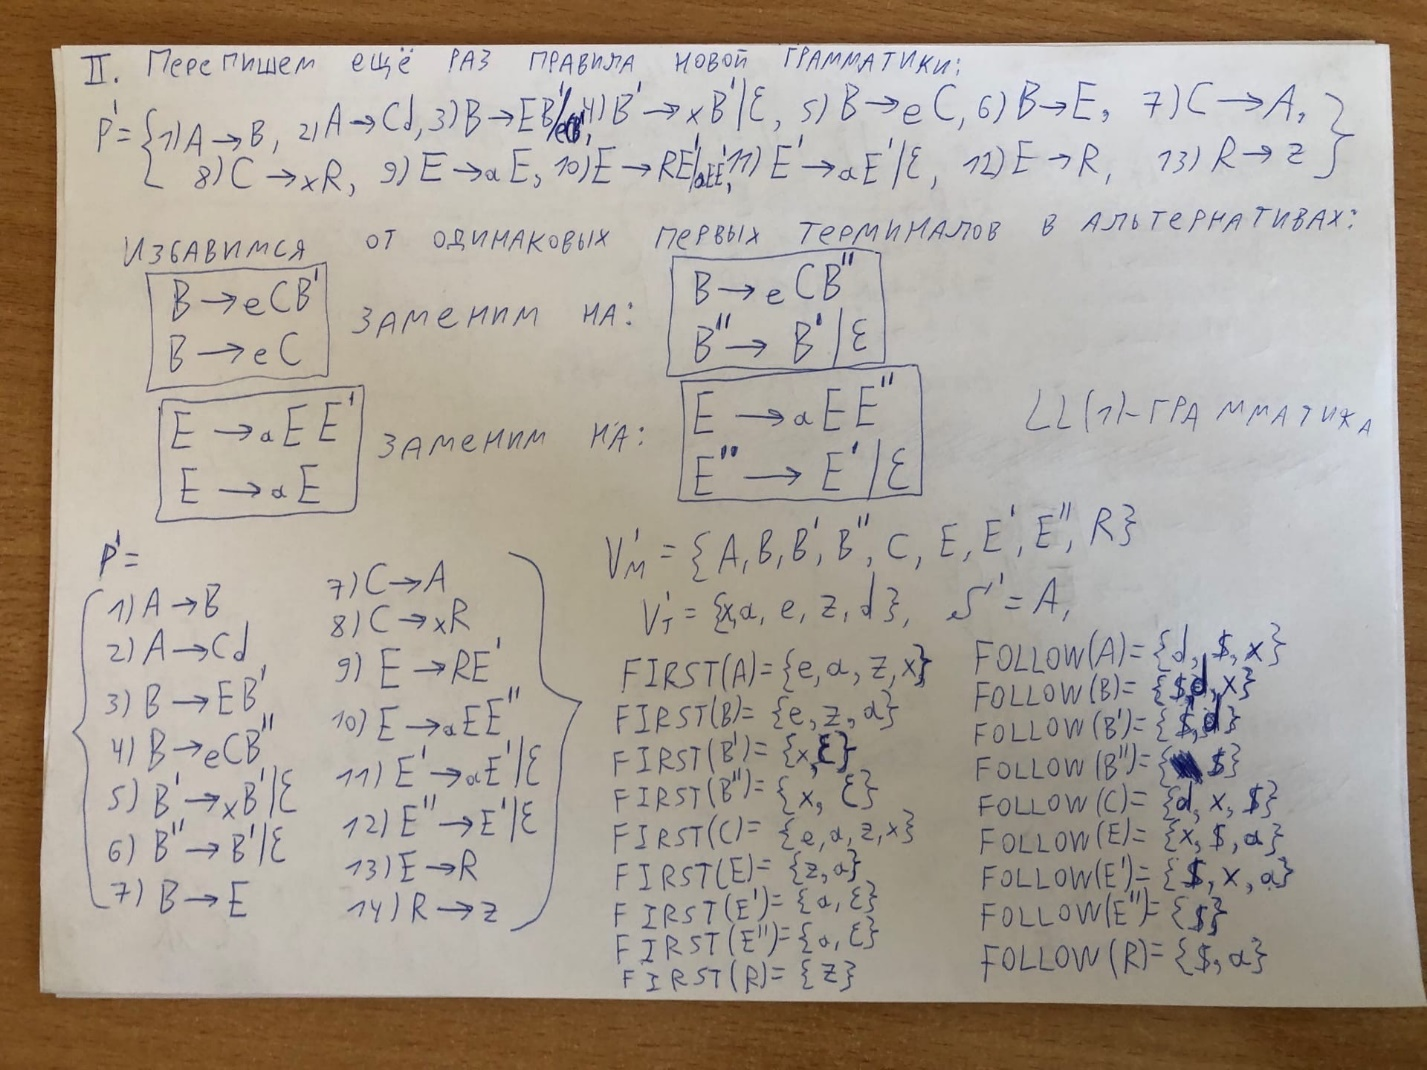 II. Перепишем ещё раз правила новой грамматики:
P'={1)A→B, 2)A→Cd, 3)B→EB'/eCB', 4)B'→xB'|ε, 5)B→eC, 6)B→E, 7)C→A,
8)C→xR, 9)E→aE, 10)E→RE'/aEE', 11)E'→aE'|ε, 12)E→R, 13)R→z}
Избавимся от одинаковых первых терминалов в альтернативах:
B→eCB' заменим на: B→eCB''
B→eC B''→B'|ε
E→aEE' заменим на: E→aEE'' LL(1)-грамматика
E→aE E''→E'|ε
P'=
1)A→B
2)A→Cd
3)B→EB'
4)B→eCB''
5)B'→xB'|ε
6)B''→B'|ε
7)B→E
7)C→A
8)C→xR
9)E→RE'
10)E→aEE''
11)E'→aE'|ε
12)E''→E'|ε
13)E→R
14)R→z
V'м={A,B,B',B'',C,E,E',E'',R}
V'т={x,a,e,z,d}, S'=A,
FIRST(A)={e,a,z,x}
FIRST(B)={e,z,a}
FIRST(B')={x,ε}
FIRST(B'')={x,ε}
FIRST(C)={e,a,z,x}
FIRST(E)={z,a}
FIRST(E')={a,ε}
FIRST(E'')={a,ε}
FIRST(R)={z}
FOLLOW(A)={d,$,x}
FOLLOW(B)={$,d,x}
FOLLOW(B')={$,d}
FOLLOW(B'')={$}
FOLLOW(C)={d,x,$}
FOLLOW(E)={x,$,a}
FOLLOW(E')={$,x,a}
FOLLOW(E'')={$}
FOLLOW(R)={$,a}